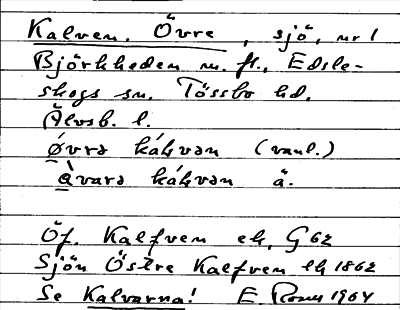 Kalven. Övre, sjö, nr 1
Björkheden m. fl., Edsle-
skogs sn. Tössbo hd.
Älvsb. l.
øvrə káḷvən (vanl.)
àvarə káḷvən ä.
Öf. Kalfven ek, G 62
Sjön Östre Kalfven Ek 1862
Se Kalvarna! E. 1964